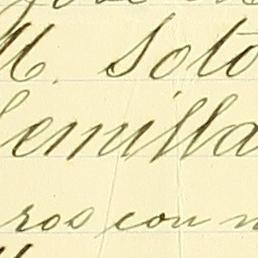 M. Soto
Semilla
ros con